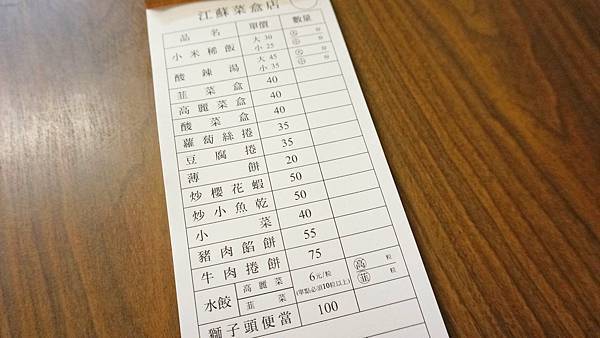 江蘇菜盒店
品名 單價 數量
小米稀飯 大 30 小 25 大 份 小 份
酸辣湯 大 45 小 35 大 份 小 份
韮菜盒 40
高麗菜盒 40
酸菜盒 40
蘿蔔絲捲 35
豆腐捲 35
薄餅 20
炒櫻花蝦 50
炒小魚乾 50
小菜 40
豬肉餡餅 55
牛肉捲餅 75
水餃 高麗菜 韮菜 6元/粒 (單點必須10粒以上) 高 粒 韮 粒
獅子頭便當 100